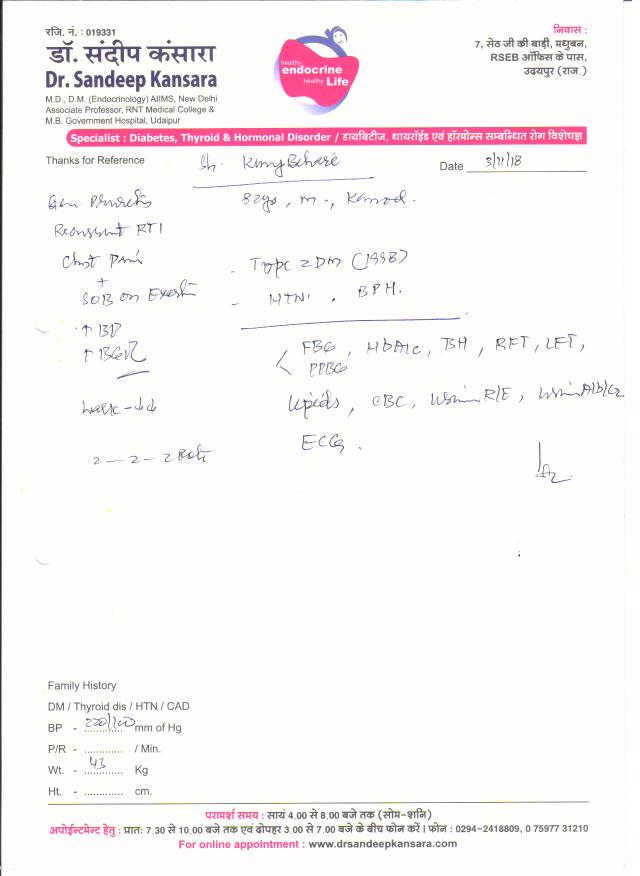 रजि. नं. : 019331
डॉ. संदीप कंसारा
Dr. Sandeep Kansara
M.D., D.M. (Endocrinology) AIIMS, New Delhi
Associate Professor, RNT Medical College &
M.B. Government Hospital, Udaipur
healthy
endocrine
healthy Life
निवास :
7, सेठ जी की बाड़ी, मधुबन,
RSEB ऑफिस के पास,
उदयपुर (राज.)
Specialist : Diabetes, Thyroid & Hormonal Disorder / डायबिटीज, थायरॉईड एवं हॉरमोन्स सम्बन्धित रोग विशेषज्ञ
Thanks for Reference
Date 3/11/18
82yo, m -,
Recurrent RTI
Chest Pain
- Type 2 DM (1998)
+
SOB on
- HTN . BPH.
↑ BP
FBG, HbA1c, RFT, LFT,
PPBG
Lipids, CBC, Urine R/E,
ECG.
2 - 2 - 2 Roti
Family History
DM / Thyroid dis / HTN / CAD
BP - 220/100 mm of Hg
P/R - ............. / Min.
Wt. - 43 Kg
Ht. - ............. cm.
परामर्श समय : सायं 4.00 से 8.00 बजे तक (सोम-शनि)
अपोईन्टमेन्ट हेतु : प्रातः 7.30 से 10.00 बजे तक एवं दोपहर 3.00 से 7.00 बजे के बीच फोन करें । फोन : 0294-2418809, 0 75977 31210
For online appointment : www.drsandeepkansara.com